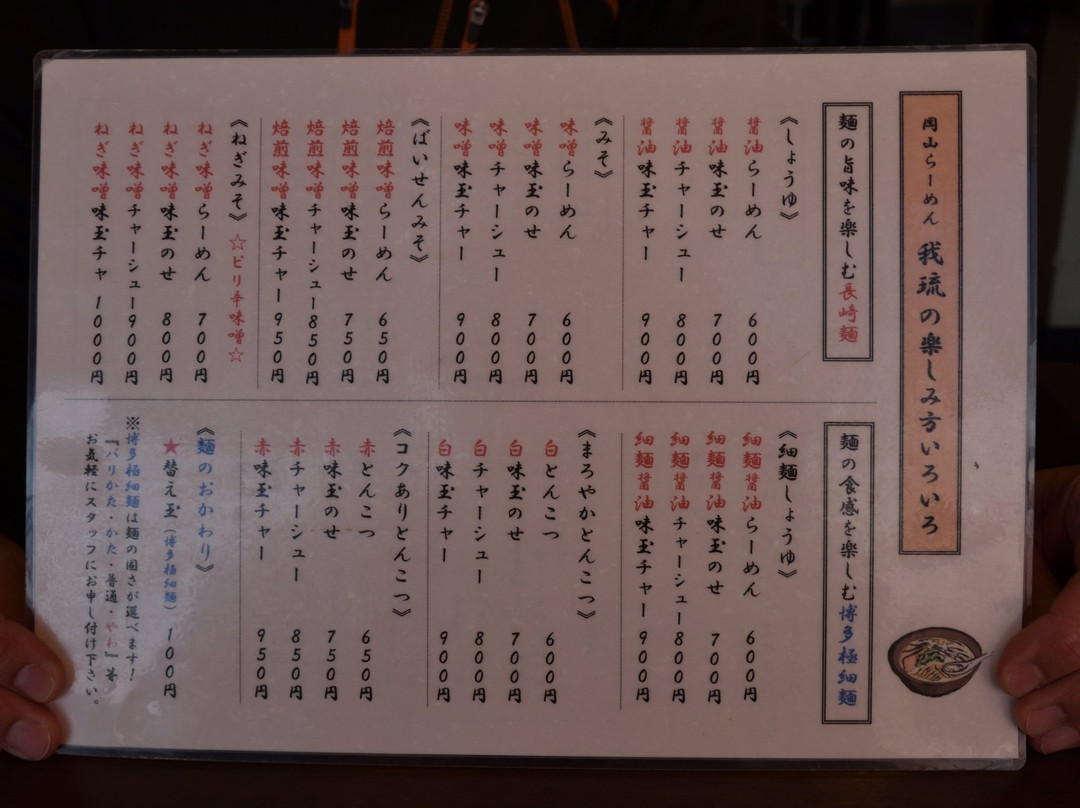 岡山らーめん 我琉の楽しみ方いろいろ
麺の旨味を楽しむ長崎麺
《しょうゆ》
醤油らーめん 600円
醤油味玉のせ 700円
醤油チャーシュー 800円
醤油味玉チャー 900円
《みそ》
味噌らーめん 600円
味噌味玉のせ 700円
味噌チャーシュー 800円
味噌味玉チャー 900円
《ばいせんみそ》
焙煎味噌らーめん 650円
焙煎味噌味玉のせ 750円
焙煎味噌チャーシュー 850円
焙煎味噌味玉チャー 950円
《ねぎみそ》 ☆ピリ辛味噌☆
ねぎ味噌らーめん 700円
ねぎ味噌味玉のせ 800円
ねぎ味噌チャーシュー 900円
ねぎ味噌味玉チャ 1000円
麺の食感を楽しむ博多極細麺
《細麺しょうゆ》
細麺醤油らーめん 600円
細麺醤油味玉のせ 700円
細麺醤油チャーシュー 800円
細麺醤油味玉チャー 900円
《まろやかとんこつ》
白とんこつ 600円
白味玉のせ 700円
白チャーシュー 800円
白味玉チャー 900円
《コクありとんこつ》
赤とんこつ 650円
赤味玉のせ 750円
赤チャーシュー 850円
赤味玉チャー 950円
《麺のおかわり》
★替え玉(博多極細麺) 100円
※博多極細麺は麺の固さが選べます!
『バリかた・かた・普通・やわ』等
お気軽にスタッフにお申し付け下さい。